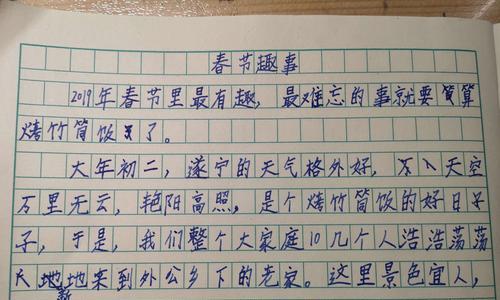 春节趣事
2019年春节里最有趣，最难忘的事就要算
烤竹筒饭了。
大年初二，遂宁的天气格外好，天空
万里无云，艳阳高照，是个烤竹筒饭的好日子
子，于是，我们整个大家庭10几个人浩浩荡荡
地来到外公乡下的老家。这里景色宜人，
新